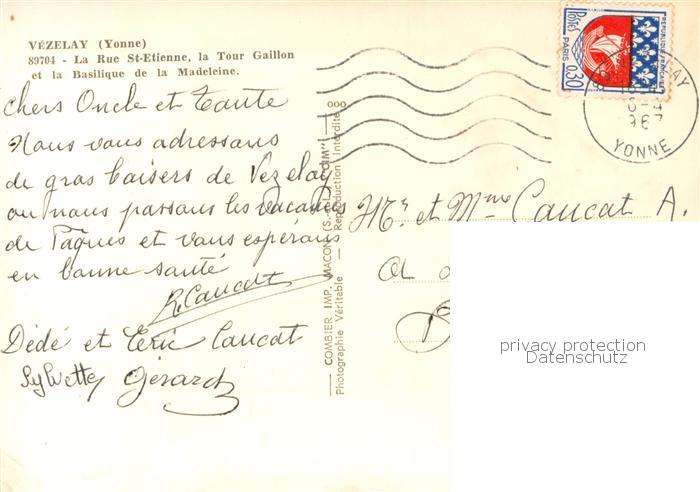 VÉZELAY (Yonne)
89704 - La Rue St-Etienne, la Tour Gaillon
et la Basilique de la Madeleine.
chers Oncle et Tante
Nous vous adressons
de gros baisers de Vezelay
ou nous passons les vacances
de Pâques et vous espérons
en bonne santé
R. Caucat
Dédé et Eric Caucat
Sylvette Gérard
COMBIER IMP. MACON (S.-&-L.) "CIM"
Photographie Véritable — Reproduction Interdite
000
POSTES
PARIS 0,30
REPUBLIQUE FRANÇAISE
YONNE
Mr. et Mme Caucat A.
privacy protection
Datenschutz